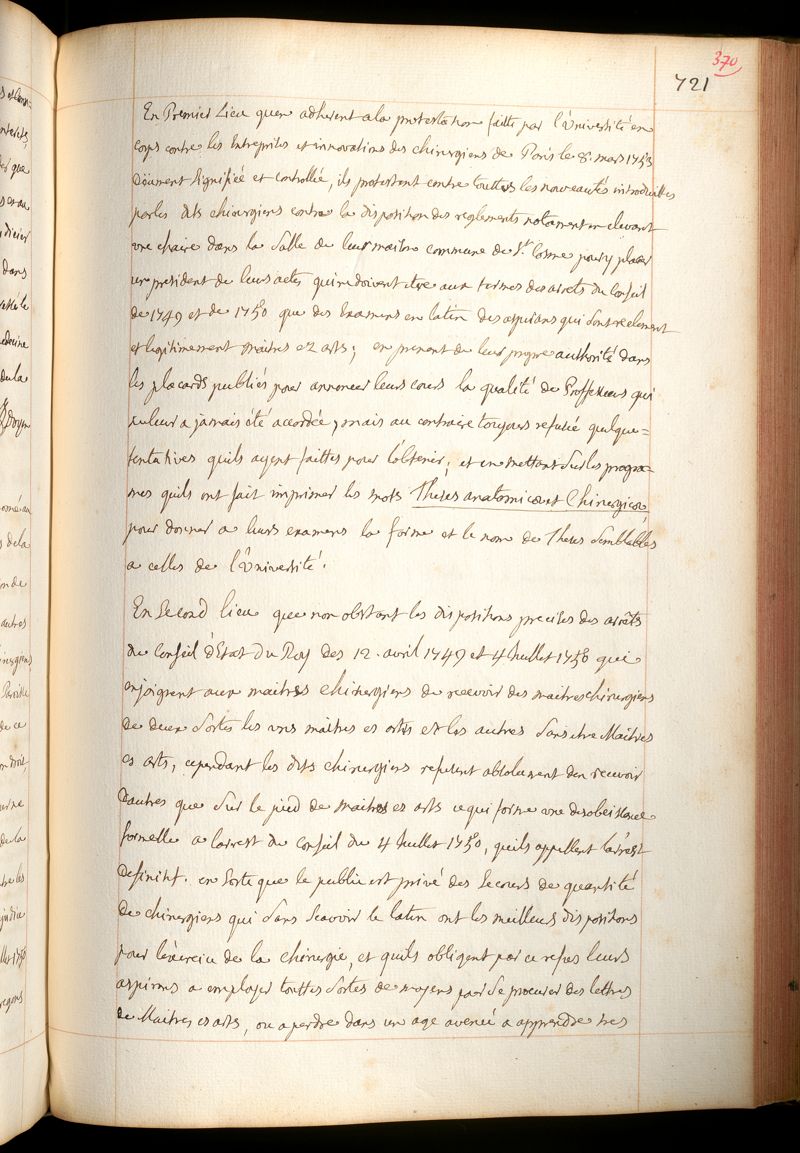 370
721
En Premier Lieu quen adherent ala protestation faitte par l'Université en
corps contre les Entreprises et innovations des chirurgiens de Paris le 8. mars 1753
Düement signifiée et controllée, ils protestent contre touttes les nouveautés introduittes
par les dits chirurgiens contre la disposition des reglements notament en elevant
une chaire dans la Salle de leur maison commune de St. Cosme pour y placer
un president de leurs actes qui ne doivent etre aux termes des arrets du Conseil
de 1749 et de 1750 que des Examens en latin des aspirans qui sont reelement
et legitimement maitres ez arts; en prenent de leur propre authorité dans
les placards publiés pour annoncer leurs cours la qualité de Proffesseurs qui
ne leur a jamais été accordée, mais au contraire toujours refusée quelque=
tentatives quils ayent faittes pour l'obtenir; et en mettant sur les progra=
mes quils ont fait imprimer les mots Theses anatomicoet Chirurgicae
pour donner a leurs examens la forme et le nom de Theses semblables
a celles de l'Université.
En Second lieu que non obstant les dispositions precises des arrêts
du Conseil d'Etat du Roy des 12. avril 1749 et 4 Juillet 1750 qui
enjoignent aux maitres chirurgiens de recevoir des maitres chirurgiens
de deux sortes les uns maitres es arts et les autres sans etre Maitres
es arts, cependant les dits chirurgiens refusent absolument den recevoir
dautres que sur le pied de maitres es arts ce qui forme une desobeissance
formelle a larrest du Conseil du 4 Juillet 1750, quils appellent larrest
Definitif. en sorte que le public est privé des Secours de quantité
de chirurgiens qui sans scavoir le latin ont les meilleurs dispositions
pour l'exercice de la chirurgie, et quils obligent par ce refus leurs
aspirans a employer touttes sortes de moyens pour se procurer des lettres
de Maitres es arts, ou a perdre dans un age avencé a apprendre tres